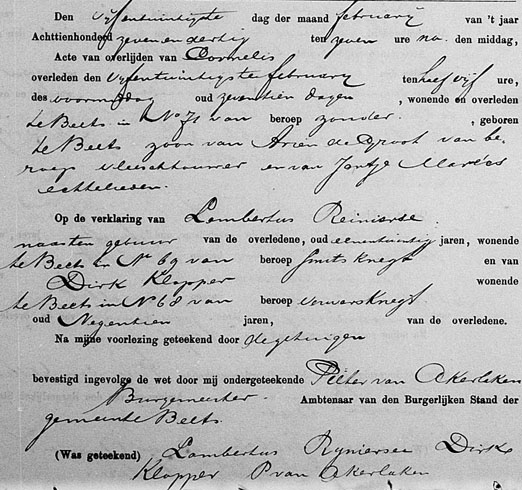 Den vyfentwintigste dag der maand february van 't jaar
Achttienhonderd zeven en dertig ten zeven ure na. den middag,
Acte van overlijden van Cornelis
overleden den vyfentwintigste february ten half vyf ure,
des voormiddag oud zeventien dagen, wonende en overleden
te Beets in No 71 van beroep zonder, geboren
te Beets zoon van Arien de Groot van be-
roep vleeschhouwer en van Jantje Marées
echtelieden.
Op de verklaring van Lambertus Reinierse
naasten gebuur van de overledene, oud eenentwintig jaren, wonende
te Beets in No 69 van beroep smits knegt en van
Dirk Klopper wonende
te Beets in No 68 van beroep verwersknegt
oud Negentien jaren, van de overledene.
Na mijne voorlezing geteekend door de getuigen
bevestigd ingevolge de wet door mij ondergeteekende Pieter van Akerlaken
Burgemeester Ambtenaar van den Burgerlijken Stand der
gemeente Beets.
(Was geteekend) Lambertus Rynierse Dirk
Klopper P van Akerlaken